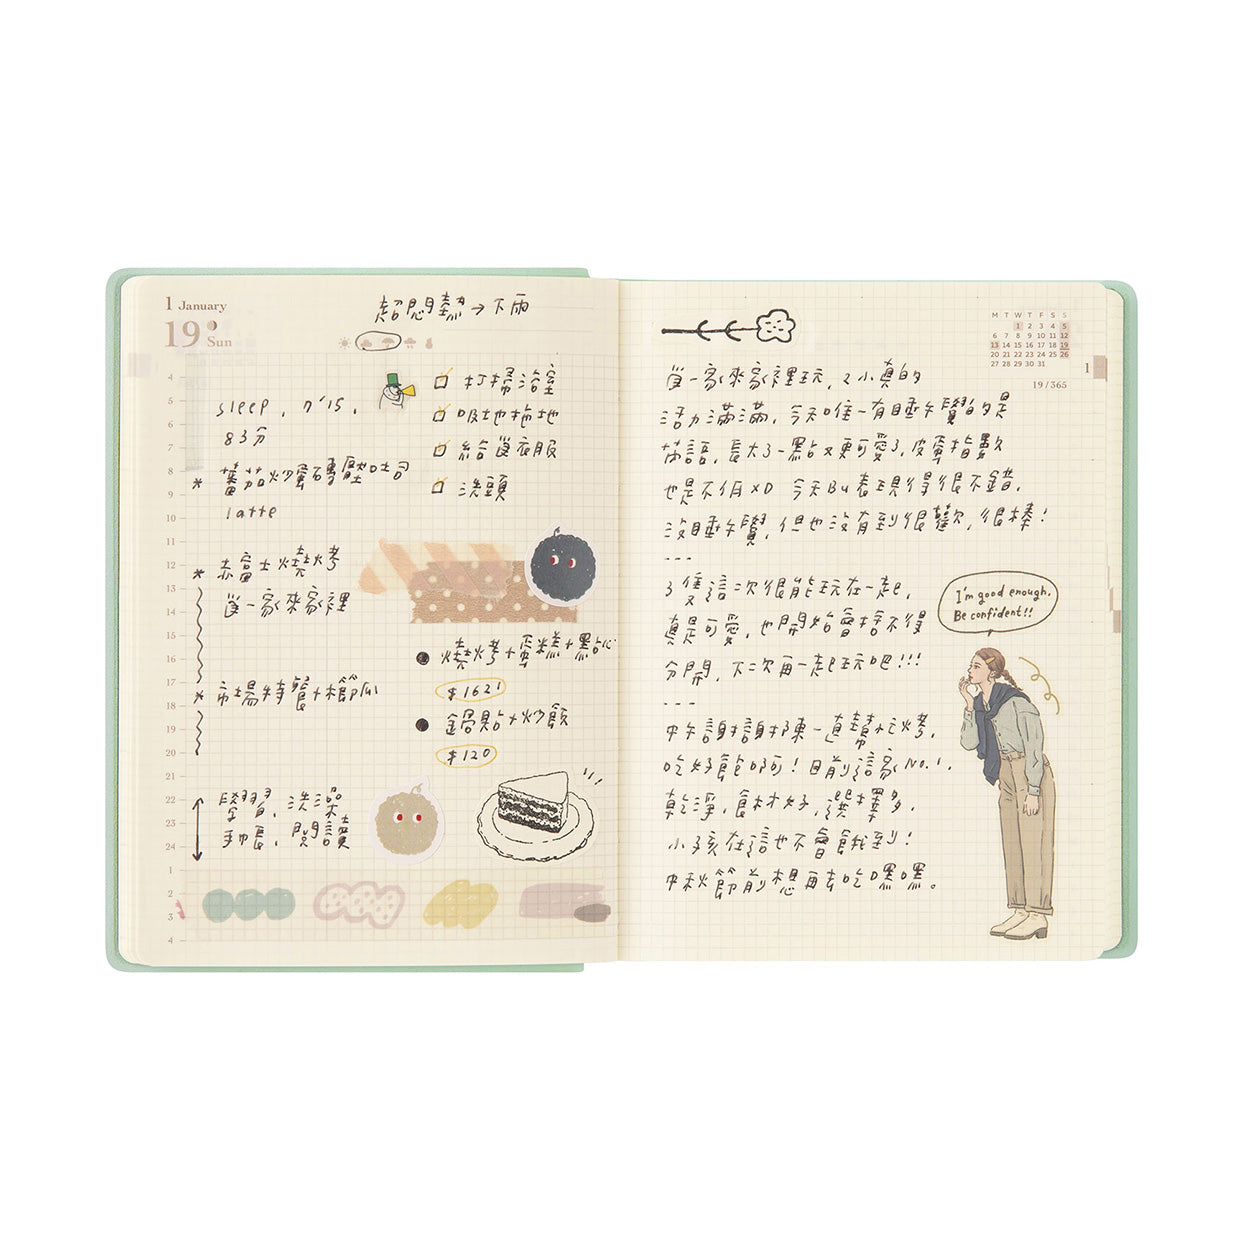 1 January
19 Sun
超悶熱→下雨
4
5
6
7
8
9
10
11
12
13
14
15
16
17
18
19
20
21
22
23
24
1
2
3
4
sleep, 7'15,
83分
* 蕃茄炒蛋磚壓吐司
latte
* 赤富士燒烤
一家來家裡
* 市場特餐+櫛瓜
學習、洗澡
手帳、閱讀
打掃浴室
吸地拖地
給衣服
洗頭
燒烤+蛋糕+點心
$1621
鍋貼+炒飯
$120
M T W T F S S
1 2 3 4 5
6 7 8 9 10 11 12
13 14 15 16 17 18 19
20 21 22 23 24 25 26
27 28 29 30 31
19/365
1
一家來家裡玩,2小真的
活力滿滿,今天唯一有睡午覺的是
芮語,長大了一點又更可愛了,皮蛋指數
也是不低XD 今天Bu表現得很不錯,
沒睡午覺,但也沒有到很歡,很棒!
---
3隻這次很能玩在一起,
真是可愛,也開始會捨不得
分開,下次再一起玩吧!!!
---
中午謝謝陳一直幫忙烤,
吃好飽啊!目前這家No.1,
乾淨,食材好,選擇多,
小孩在這也不會餓到!
中秋節前想再去吃嘿嘿。
I'm good enough.
Be confident!!